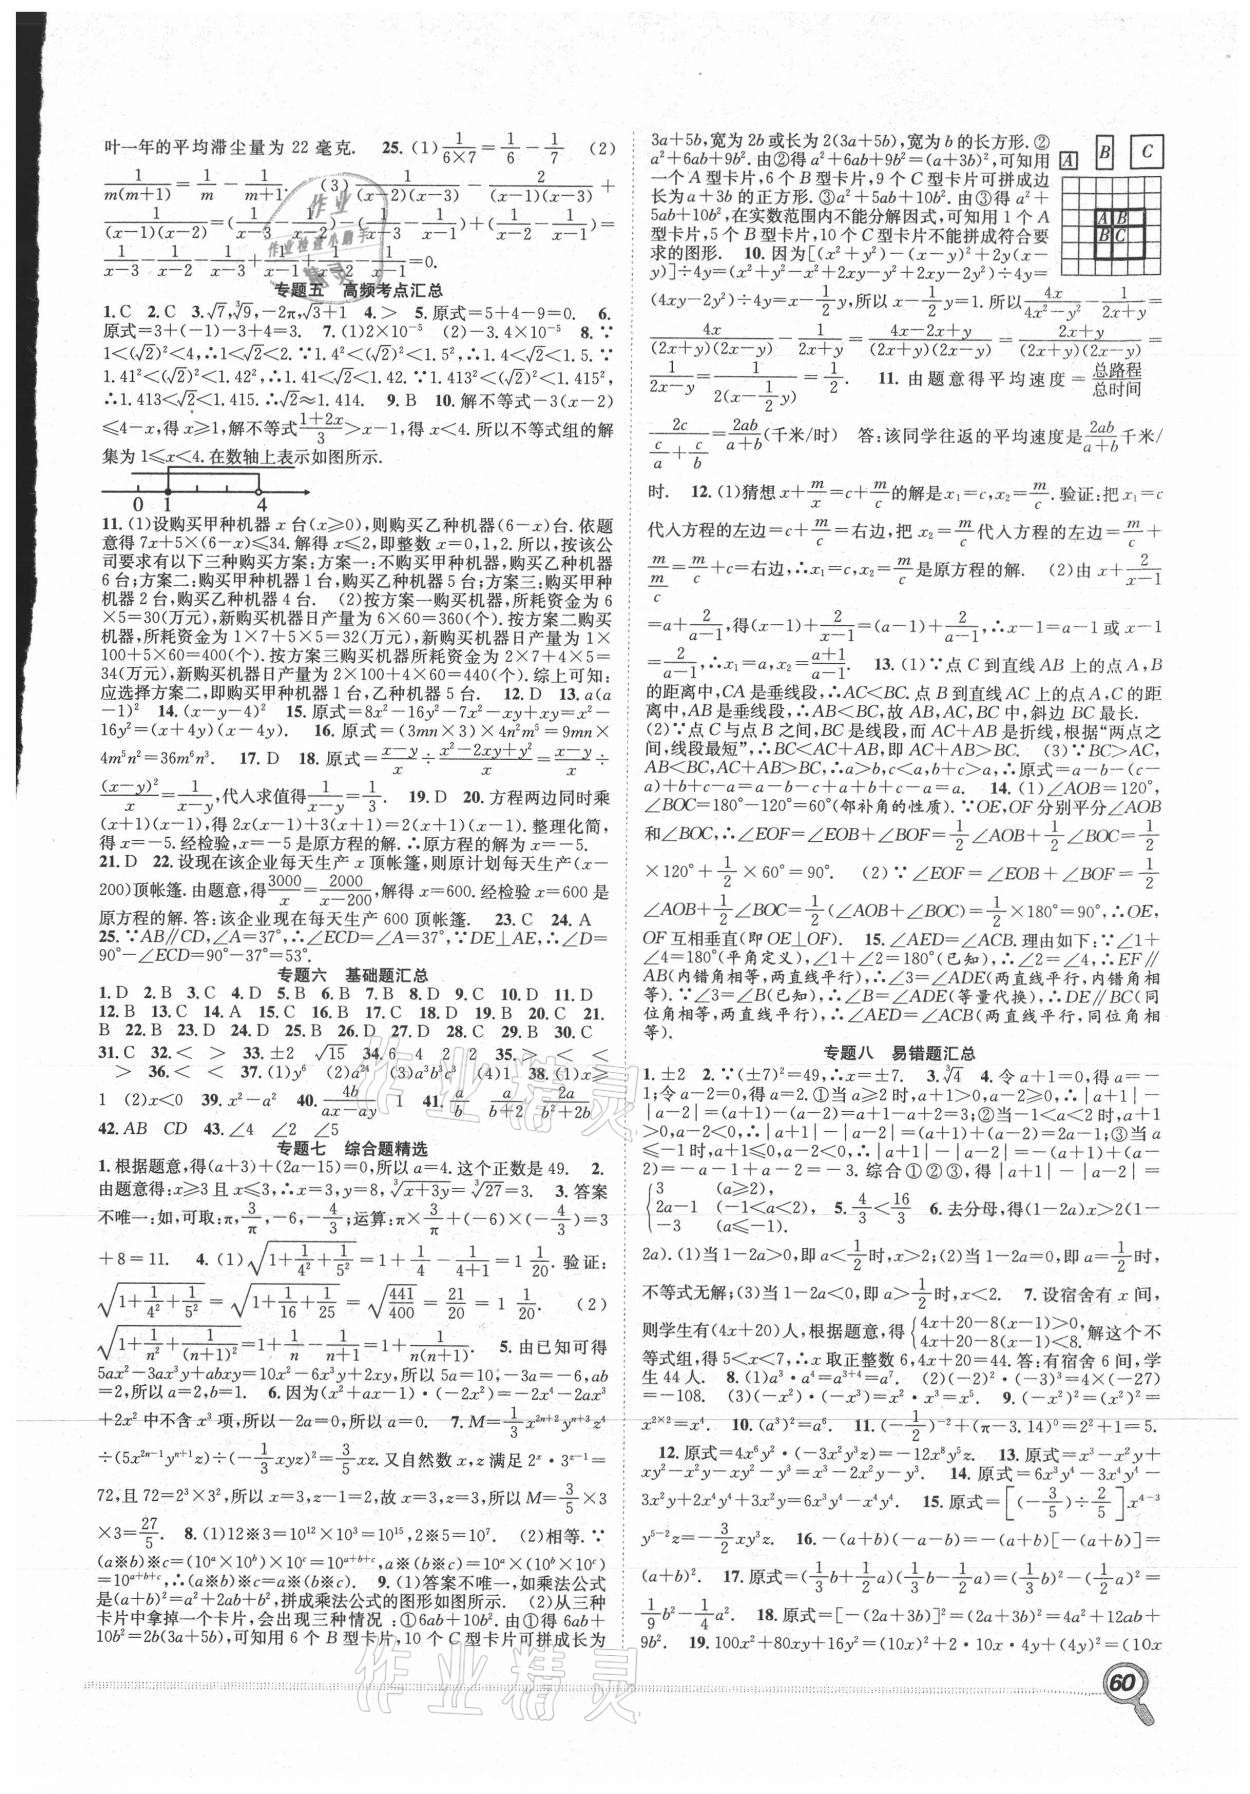 叶一年的平均滞尘量为 22 毫克. 25. (1) 1/(6×7)=1/6-1/7 (2)
1/(m(m+1))=1/m-1/(m+1). (3) 1/((x-2)(x-3))-2/((x-1)(x-3))+
1/((x-1)(x-2))=(1/(x-3)-1/(x-2))-(1/(x-3)-1/(x-1))+(1/(x-2)-1/(x-1))=
1/(x-3)-1/(x-2)-1/(x-3)+1/(x-1)+1/(x-2)-1/(x-1)=0.
专题五 高频考点汇总
1. C 2. C 3. √7,∛9,-2π,√3+1 4. > 5. 原式=5+4-9=0. 6.
原式=3+(-1)-3+4=3. 7. (1)2×10⁻⁵ (2)-3.4×10⁻⁵ 8. ∵
1<(√2)²<4,∴1<√2<2. ∵1.4²<(√2)²<1.5²,∴1.4<√2<1.5. ∵
1.41²<(√2)²<1.42²,∴1.41<√2<1.42. ∵1.413²<(√2)²<1.415²,
∴1.413<√2<1.415. ∴√2≈1.414. 9. B 10. 解不等式-3(x-2)
≤4-x,得 x≥1,解不等式(1+2x)/3>x-1,得 x<4. 所以不等式组的解
集为 1≤x<4. 在数轴上表示如图所示.
0 1 4
11. (1)设购买甲种机器 x 台(x≥0),则购买乙种机器(6-x)台. 依题
意得 7x+5×(6-x)≤34. 解得 x≤2,即整数 x=0,1,2. 所以,按该公
司要求有以下三种购买方案:方案一:不购买甲种机器,购买乙种机器
6 台;方案二:购买甲种机器 1 台,购买乙种机器 5 台;方案三:购买甲种
机器 2 台,购买乙种机器 4 台. (2)按方案一购买机器,所耗资金为 6
×5=30(万元),新购买机器日产量为 6×60=360(个). 按方案二购买
机器,所耗资金为 1×7+5×5=32(万元),新购买机器日产量为 1×
100+5×60=400(个). 按方案三购买机器所耗资金为 2×7+4×5=
34(万元),新购买机器日产量为 2×100+4×60=440(个). 综上可知:
应选择方案二,即购买甲种机器 1 台,乙种机器 5 台. 12. D 13. a(a
-1)² 14. (x-y-4)² 15. 原式=8x²-16y²-7x²-xy+xy=x²-
16y²=(x+4y)(x-4y). 16. 原式=(3mn×3)×4n²m⁵=9mn×
4m⁵n²=36m⁶n³. 17. D 18. 原式=(x-y)/x÷(x²-2xy+y²)/x=(x-y)/x×
(x-y)²/x=1/(x-y),代入求值得1/(x-y)=1/3. 19. D 20. 方程两边同时乘
(x+1)(x-1),得 2x(x-1)+3(x+1)=2(x+1)(x-1). 整理化简,
得 x=-5. 经检验,x=-5 是原方程的解. ∴原方程的解为 x=-5.
21. D 22. 设现在该企业每天生产 x 顶帐篷,则原计划每天生产(x-
200)顶帐篷. 由题意,得3000/x=2000/(x-200),解得 x=600. 经检验 x=600 是
原方程的解. 答:该企业现在每天生产 600 顶帐篷. 23. C 24. A
25. ∵AB∥CD,∠A=37°,∴∠ECD=∠A=37°,∵DE⊥AE,∴∠D=
90°-∠ECD=90°-37°=53°.
专题六 基础题汇总
1. D 2. B 3. C 4. D 5. B 6. B 7. B 8. D 9. C 10. D 11. D
12. B 13. C 14. A 15. C 16. B 17. C 18. D 19. B 20. C 21.
B 22. B 23. D 24. D 25. B 26. D 27. D 28. C 29. B 30. C
31. C 32. < > 33. ±2 √15 34. 6 4 2 2 35. > < <
> 36. < < 37. (1)y⁶ (2)a²⁴ (3)a³b³c³ (4)1 38. (1)x≥
1 (2)x<0 39. x²-a² 40. 4b/(ax-ay) 1 41. a/b a/(b+2) 2a/(b²+2b)
42. AB CD 43. ∠4 ∠2 ∠5
专题七 综合题精选
1. 根据题意,得(a+3)+(2a-15)=0,所以 a=4. 这个正数是 49. 2.
由题意得:x≥3 且 x≤3,∴x=3,y=8,∛(x+3y)=∛27=3. 3. 答案
不唯一:如,可取:π,3/π,-6,-4/3;运算:π×3/π+(-6)×(-4/3)=3
+8=11. 4. (1)√(1+1/4²+1/5²)=1+1/4-1/(4+1)=1 1/20. 验证:
√(1+1/4²+1/5²)=√(1+1/16+1/25)=√(441/400)=21/20=1 1/20. (2)
√(1+1/n²+1/(n+1)²)=1+1/n-1/(n+1)=1+1/(n(n+1)). 5. 由已知可得
5ax²-3ax³y+abxy=10x²-6x³y+2xy,所以 5a=10,-3a=-6,ab
=2,所以 a=2,b=1. 6. 因为(x²+ax+1)·(-2x²)=-2x⁴-2ax³
+2x² 中不含 x³ 项,所以-2a=0,所以 a=0. 7. M=1/3x²ⁿ⁺²yⁿ⁺³z⁴
÷(5x²ⁿ⁻¹yⁿ⁺¹z)÷(-1/3xyz)²=3/5xz. 又自然数 x,z 满足 2ˣ·3ᶻ⁻¹=
72,且 72=2³×3²,所以 x=3,z-1=2,故 x=3,z=3,所以 M=3/5×3
×3=27/5. 8. (1)12※3=10¹²×10³=10¹⁵,2※5=10⁷. (2)相等. ∵
(a※b)※c=(10ᵃ×10ᵇ)×10ᶜ=10ᵃ⁺ᵇ⁺ᶜ,a※(b※c)=10ᵃ×(10ᵇ×10ᶜ)
=10ᵃ⁺ᵇ⁺ᶜ,∴(a※b)※c=a※(b※c). 9. (1)答案不唯一,如乘法公式
是(a+b)²=a²+2ab+b²,拼成乘法公式的图形如图所示. (2)从三种
卡片中拿掉一个卡片,会出现三种情况:①6ab+10b². 由①得 6ab+
10b²=2b(3a+5b),可知用 6 个 B 型卡片,10 个 C 型卡片可拼成长为
3a+5b,宽为 2b 或长为 2(3a+5b),宽为 b 的长方形. ②
a²+6ab+9b². 由②得 a²+6ab+9b²=(a+3b)²,可知用
一个 A 型卡片,6 个 B 型卡片,9 个 C 型卡片可拼成边
长为 a+3b 的正方形. ③a²+5ab+10b². 由③得 a²+
5ab+10b²,在实数范围内不能分解因式,可知用 1 个 A
型卡片,5 个 B 型卡片,10 个 C 型卡片不能拼成符合要
求的图形. 10. 因为[(x²+y²)-(x-y)²+2y(x-
y)]÷4y=(x²+y²-x²+2xy-y²+2xy-2y²)÷4y=
A B C
A B
B C
(4xy-2y²)÷4y=x-1/2y,所以 x-1/2y=1. 所以4x/(4x²-y²)-1/(2x+y)=
4x/((2x+y)(2x-y))-1/(2x+y)=(4x-2x+y)/((2x+y)(2x-y))=(2x+y)/((2x+y)(2x-y))=
1/(2x-y)=1/(2(x-1/2y))=1/2. 11. 由题意得平均速度=总路程/总时间
2c/(c/a+c/b)=2ab/(a+b)(千米/时) 答:该同学往返的平均速度是2ab/(a+b)千米/
时. 12. (1)猜想 x+m/x=c+m/c的解是 x₁=c,x₂=m/c. 验证:把 x₁=c
代入方程的左边=c+m/c=右边,把 x₂=m/c代入方程的左边=m/c+
m/(m/c)=m/c+c=右边,∴x₁=c,x₂=m/c是原方程的解. (2)由 x+2/(x-1)
=a+2/(a-1),得(x-1)+2/(x-1)=(a-1)+2/(a-1),∴x-1=a-1 或 x-1
=2/(a-1),∴x₁=a,x₂=(a+1)/(a-1). 13. (1)∵点 C 到直线 AB 上的点 A,B
的距离中,CA 是垂线段,∴AC<BC. 点 B 到直线 AC 上的点 A,C 的距
离中,AB 是垂线段,∴AB<BC,故 AB,AC,BC 中,斜边 BC 最长.
(2)∵点 C 与点 B 之间,BC 是线段,而 AC+AB 是折线,根据“两点之
间,线段最短”,∴BC<AC+AB,即 AC+AB>BC. (3)∵BC>AC,
AB<BC,AC+AB>BC,∴a>b,c<a,b+c>a,∴原式=a-b-(c-
a)+b+c-a=a-b-c+a+b+c-a=a. 14. (1)∠AOB=120°,
∠BOC=180°-120°=60°(邻补角的性质). ∵OE,OF 分别平分∠AOB
和∠BOC,∴∠EOF=∠EOB+∠BOF=1/2∠AOB+1/2∠BOC=1/2
×120°+1/2×60°=90°. (2)∵∠EOF=∠EOB+∠BOF=1/2
∠AOB+1/2∠BOC=1/2(∠AOB+∠BOC)=1/2×180°=90°,∴OE,
OF 互相垂直(即 OE⊥OF). 15. ∠AED=∠ACB. 理由如下:∵∠1+
∠4=180°(平角定义),∠1+∠2=180°(已知),∴∠2=∠4,∴EF∥
AB(内错角相等,两直线平行),∴∠3=∠ADE(两直线平行,内错角相
等). ∵∠3=∠B(已知),∴∠B=∠ADE(等量代换),∴DE∥BC(同
位角相等,两直线平行),∴∠AED=∠ACB(两直线平行,同位角相
等).
专题八 易错题汇总
1. ±2 2. ∵(±7)²=49,∴x=±7. 3. ∛4 4. 令 a+1=0,得 a=-
1;令 a-2=0,得 a=2. ①当 a≥2 时,a+1>0,a-2≥0,∴|a+1|-
|a-2|=(a+1)-(a-2)=a+1-a+2=3;②当-1<a<2 时,a+1
>0,a-2<0,∴|a+1|-|a-2|=(a+1)+(a-2)=2a-1;③当 a
≤-1 时,a+1≤0,a-2<0,∴|a+1|-|a-2|=-(a+1)+(a-
2)=-a-1+a-2=-3. 综合①②③,得|a+1|-|a-2|=
{3 (a≥2),
2a-1 (-1<a<2), 5. 4/3<16/3 6. 去分母,得(1-2a)x>2(1-
-3 (a≤-1).
2a). (1)当 1-2a>0,即 a<1/2时,x>2;(2)当 1-2a=0,即 a=1/2时,
不等式无解;(3)当 1-2a<0,即 a>1/2时,x<2. 7. 设宿舍有 x 间,
则学生有(4x+20)人,根据题意,得{4x+20-8(x-1)>0, 4x+20-8(x-1)<8. 解这个不
等式组,得 5<x<7,∴x 取正整数 6,4x+20=44. 答:有宿舍 6 间,学
生 44 人. 8. (1)a³·a⁴=a³⁺⁴=a⁷. (2)(-2)²·(-3)³=4×(-27)
=-108. (3)(-x²)·(-x³)=x²·x³=x⁵. 9. (-x²)²=(x²)²=
x²ˣ²=x⁴. 10. (a³)²=a⁶. 11. (-1/2)⁻²+(π-3.14)⁰=2²+1=5.
12. 原式=4x⁶y²·(-3x²y³z)=-12x⁸y⁵z. 13. 原式=x³-x²y+
xy²-x²y-xy²-y³=x³-2x²y-y³. 14. 原式=6x³y⁴-3x⁴y⁴-
3x²y+2x⁴y⁴+3x²y=6x³y⁴-x⁴y⁴. 15. 原式=[(-3/5)÷2/5]x⁴⁻³
y⁵⁻²z=-3/2xy³z. 16. -(a+b)(-a-b)=-(a+b)[-(a+b)]=
(a+b)². 17. 原式=(1/3b+1/2a)(1/3b-1/2a)=(1/3b)²-(1/2a)²=
1/9b²-1/4a². 18. 原式=[-(2a+3b)]²=(2a+3b)²=4a²+12ab+
9b². 19. 100x²+80xy+16y²=(10x)²+2·10x·4y+(4y)²=(10x
60
作业精灵
作业精灵
作业
作业检查小助手
精灵